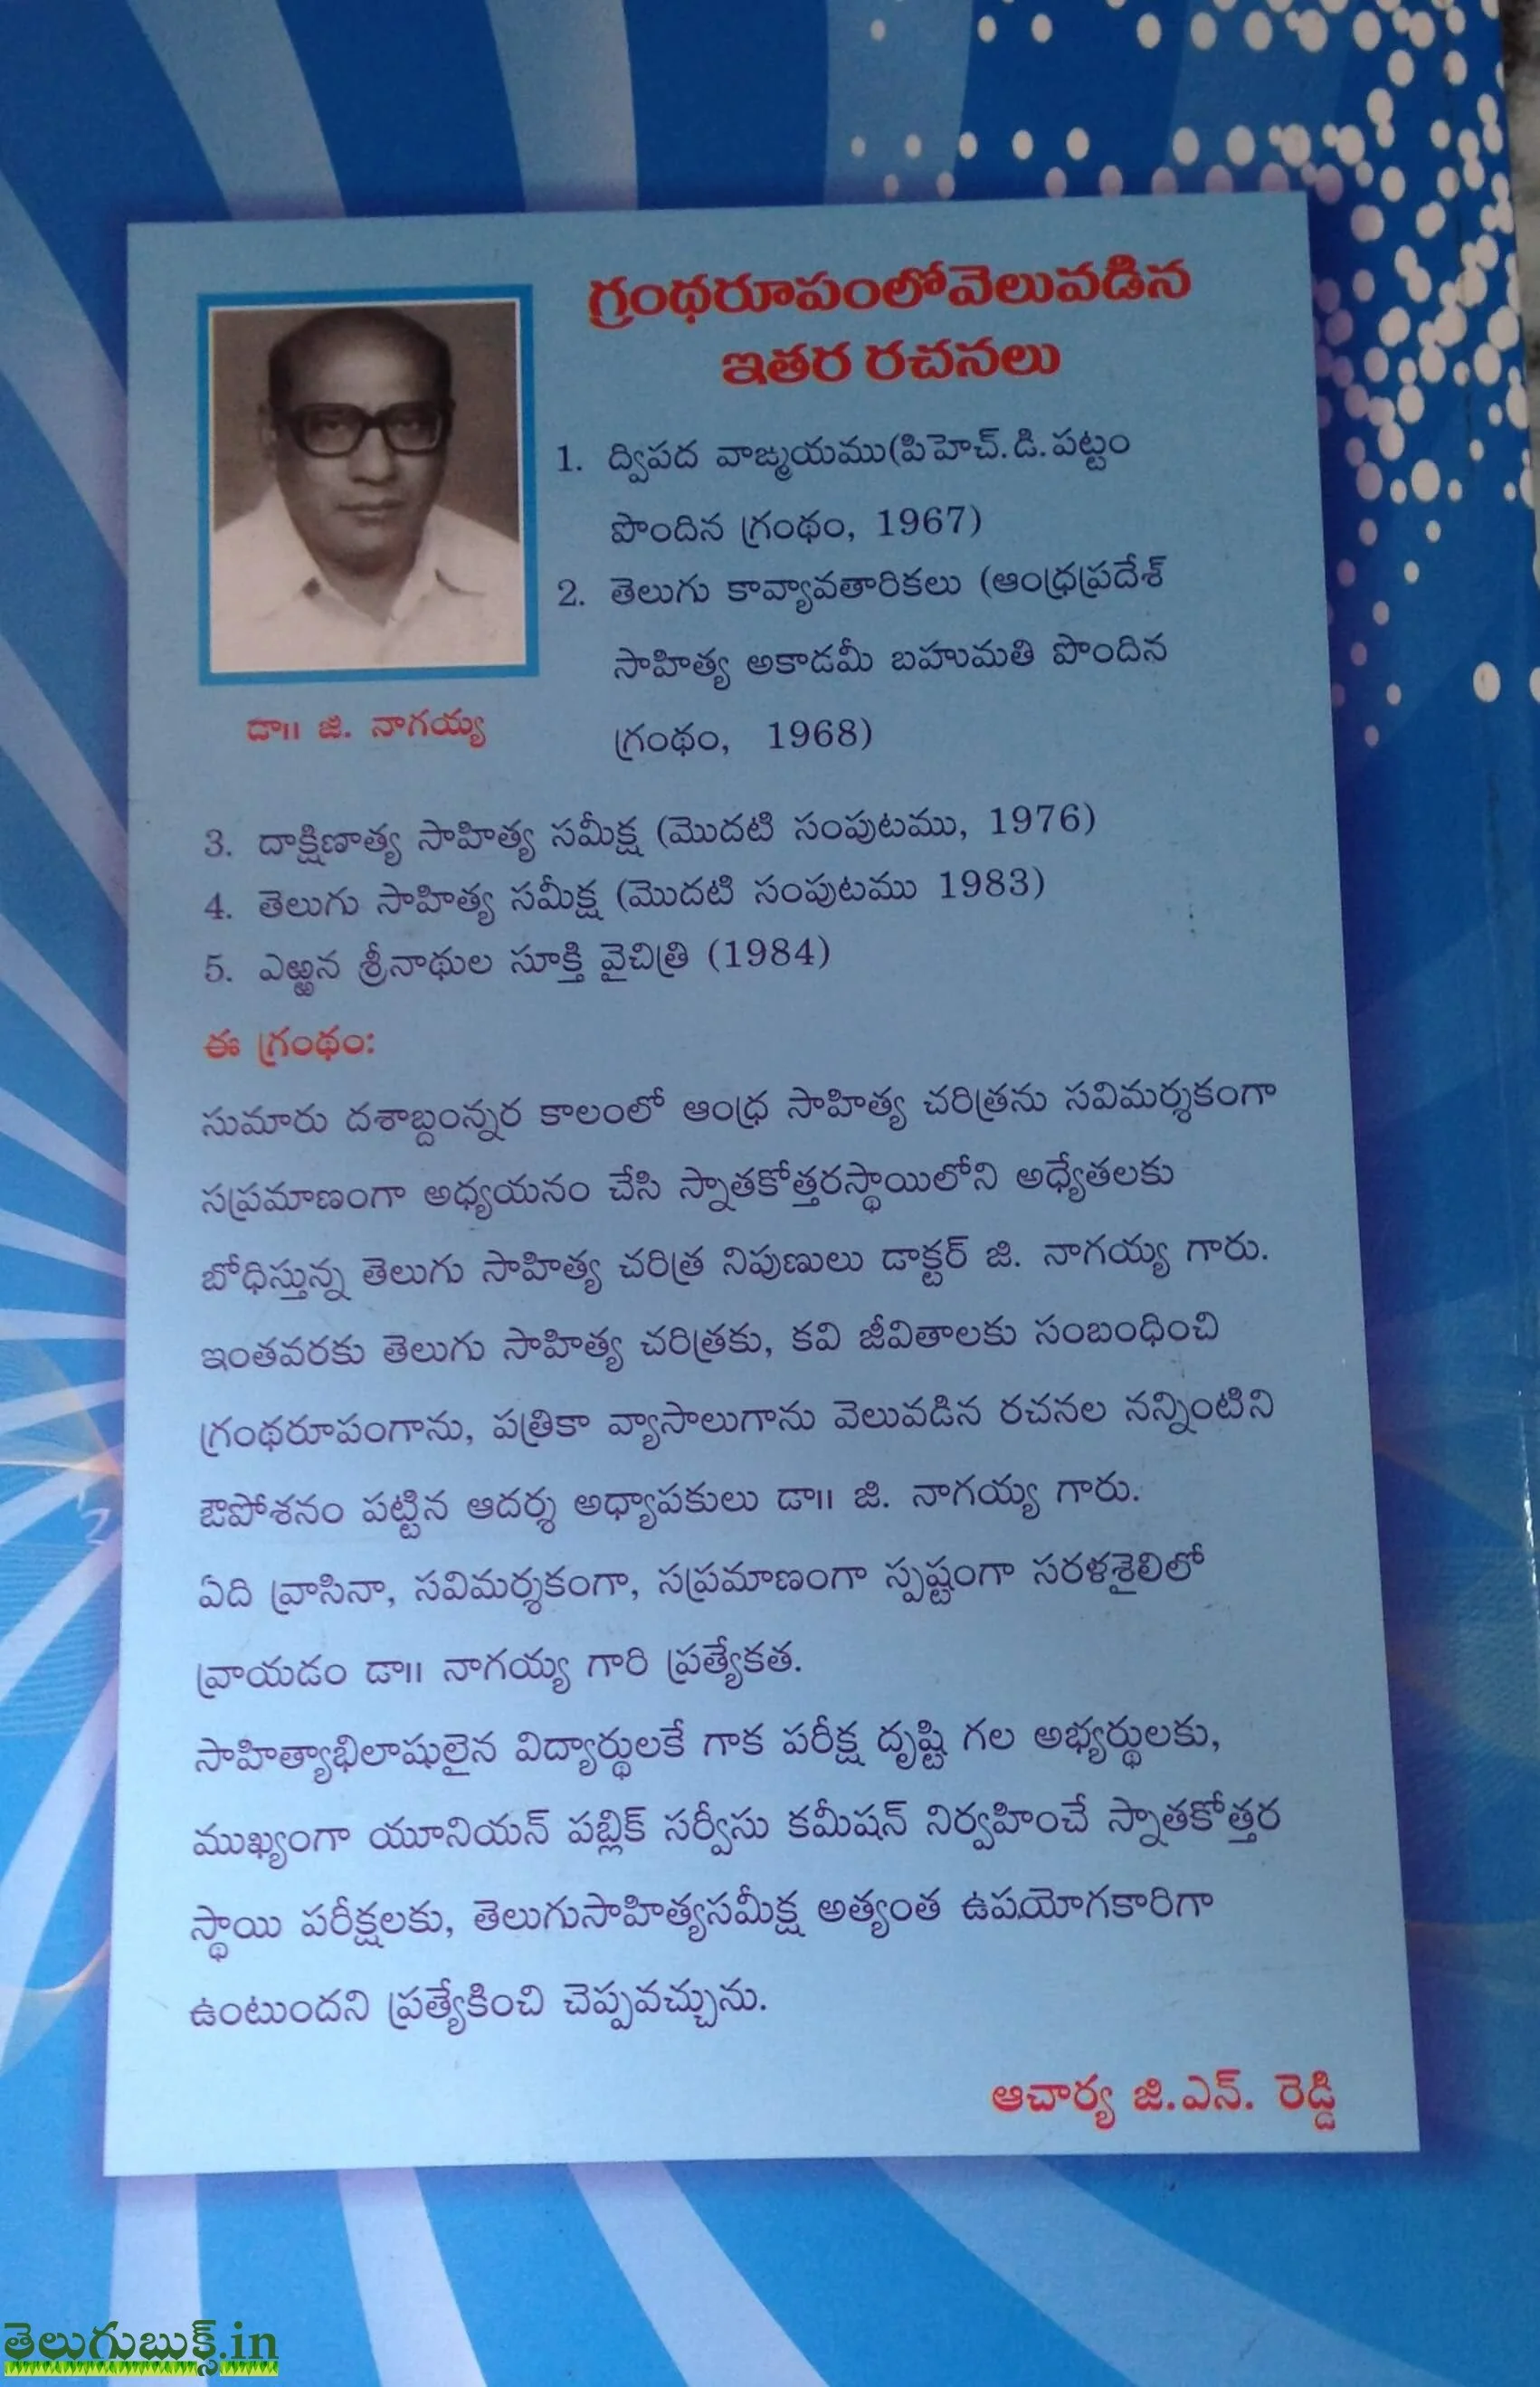 గ్రంథరూపంలోవెలువడిన
ఇతర రచనలు
1. ద్విపద వాఙ్మయము(పిహెచ్.డి.పట్టం
పొందిన గ్రంథం, 1967)
2. తెలుగు కావ్యావతారికలు (ఆంధ్రప్రదేశ్
సాహిత్య అకాడమీ బహుమతి పొందిన
గ్రంథం, 1968)
డా॥ జి. నాగయ్య
3. దాక్షిణాత్య సాహిత్య సమీక్ష (మొదటి సంపుటము, 1976)
4. తెలుగు సాహిత్య సమీక్ష (మొదటి సంపుటము 1983)
5. ఎఱ్ఱన శ్రీనాథుల సూక్తి వైచిత్రి (1984)
ఈ గ్రంథం:
సుమారు దశాబ్దంన్నర కాలంలో ఆంధ్ర సాహిత్య చరిత్రను సవిమర్శకంగా
సప్రమాణంగా అధ్యయనం చేసి స్నాతకోత్తరస్థాయిలోని అధ్యేతలకు
బోధిస్తున్న తెలుగు సాహిత్య చరిత్ర నిపుణులు డాక్టర్ జి. నాగయ్య గారు.
ఇంతవరకు తెలుగు సాహిత్య చరిత్రకు, కవి జీవితాలకు సంబంధించి
గ్రంథరూపంగాను, పత్రికా వ్యాసాలుగాను వెలువడిన రచనల నన్నింటిని
ఔపోశనం పట్టిన ఆదర్శ అధ్యాపకులు డా॥ జి. నాగయ్య గారు.
ఏది వ్రాసినా, సవిమర్శకంగా, సప్రమాణంగా స్పష్టంగా సరళశైలిలో
వ్రాయడం డా॥ నాగయ్య గారి ప్రత్యేకత.
సాహిత్యాభిలాషులైన విద్యార్థులకే గాక పరీక్ష దృష్టి గల అభ్యర్థులకు,
ముఖ్యంగా యూనియన్ పబ్లిక్ సర్వీసు కమీషన్ నిర్వహించే స్నాతకోత్తర
స్థాయి పరీక్షలకు, తెలుగుసాహిత్యసమీక్ష అత్యంత ఉపయోగకారిగా
ఉంటుందని ప్రత్యేకించి చెప్పవచ్చును.
ఆచార్య జి.ఎన్. రెడ్డి
తెలుగుబుక్స్.in